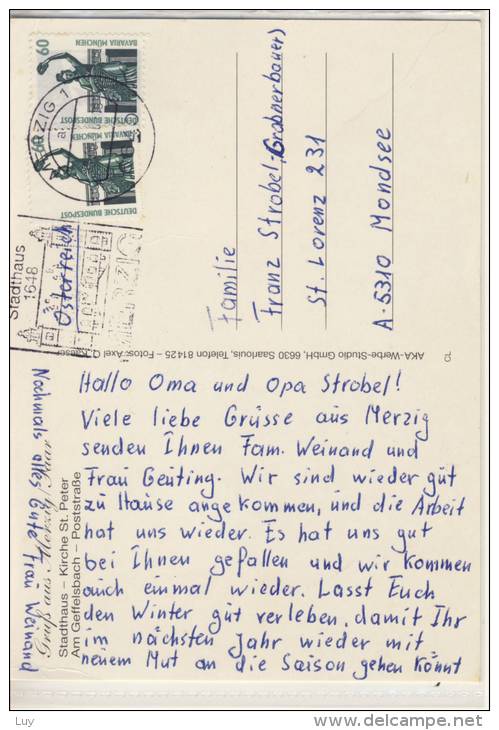 Hallo Oma und Opa Strobel!
Viele liebe Grüsse aus Merzig
senden Ihnen Fam. Weinand und
Frau Geuting. Wir sind wieder gut
zu Hause angekommen, und die Arbeit
hat uns wieder. Es hat uns gut
bei Ihnen gefallen und wir kommen
auch einmal wieder. Lasst Euch
den Winter gut verleben, damit Ihr
im nächsten Jahr wieder mit
neuem Mut an die Saison gehen könnt
Nochmals alles Gute Frau Weinand
Gruß aus Merzig/Saar
Stadthaus – Kirche St. Peter
Am Geffelsbach – Poststraße
AKA-Werbe-Studio GmbH, 6630 Saarlouis, Telefon 81425 – Fotos: Axel
Familie
Franz Strobel (Grabnerbauer)
St. Lorenz 231
A-5310 Mondsee
Österreich
60
BAVARIA MÜNCHEN
DEUTSCHE BUNDESPOST
60
BAVARIA MÜNCHEN
DEUTSCHE BUNDESPOST
MERZIG 1
Stadthaus
1648
Luy
www.delcampe.net